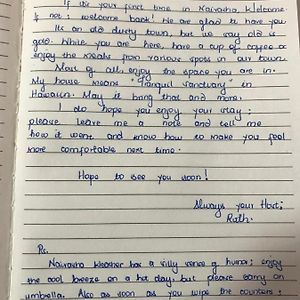 If it's your first time in Naivasha, Welcome
If not : welcome back! We are glad to have you
Its an old dusty town, but we say old is
gold. While you are here, have a cup of coffee or
enjoy the meals from various spots in our town.
Most of all, enjoy the space you are in.
My house means "Tranquil Sanctuary" in
Hawaiin. May it bring that and more.
I do hope you enjoy your stay;
please leave me a note and tell me
how it went and know how to make you feel
more comfortable next time.
Hope to see you soon!
Always your Host;
Ruth.
Naivasha Weather has a silly sense of humor; enjoy
the cool breeze on a hot day, but please carry an
umbrella. Also as soon as you wipe the counters;